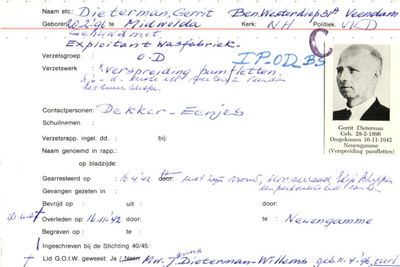 Naam etc: Dieterman, Gerrit Ben. Westerdiep 3A Veendam
Geboren 20-2-'96 te Midwolda Kerk: NH Politiek: VKD
Gehuwd met
Exploitant wasfabriek.
Verzetsgroep : O.D IP.OD BS C
Verzetswerk : verspreiding pamfletten.
Contactpersonen: Dekker-Eenjes
Schuilnamen :
Verzetsrapp. ingel. dd. : bij:
Naam genoemd in rapp.:
op bladzijde:
Gerrit Dieterman
Geb. 28-2-1896
Omgekomen 16-11-1942
Neuengamme
(Verspreiding pamfletten)
Gearresteerd op : 16 4 '42 door: met zijn
Gevangen gezeten in :
Bevrijd op : uit door:
Overleden op : 16-11-'42 door: te Neuengamme
Begraven op : te
Ingeschreven bij de Stichting 40/45:
Lid G.O.I.W. geweest: Ja (Neen) Mw. J. Dieterman-Willems geb. 11-4-'96, overl